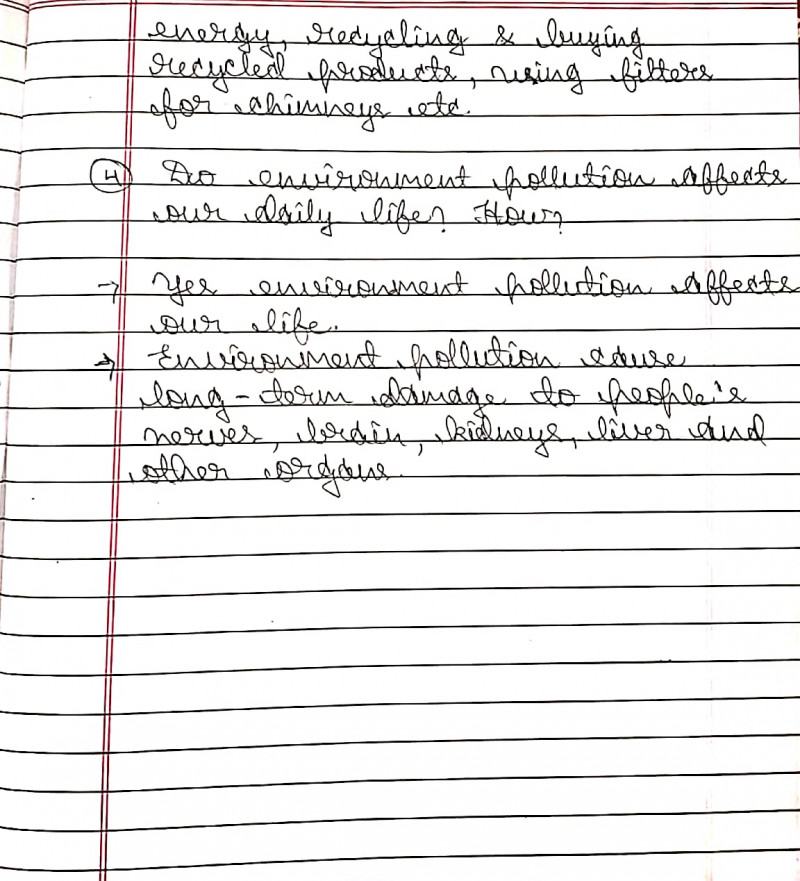 energy, recycling & buying
recycled products, using filters
for chimneys etc.
4 Do environment pollution affects
our daily life? How?
→ Yes environment pollution affects
our life.
→ Environment pollution cause
long-term damage to people's
nerves, brain, kidneys, liver and
other organs.